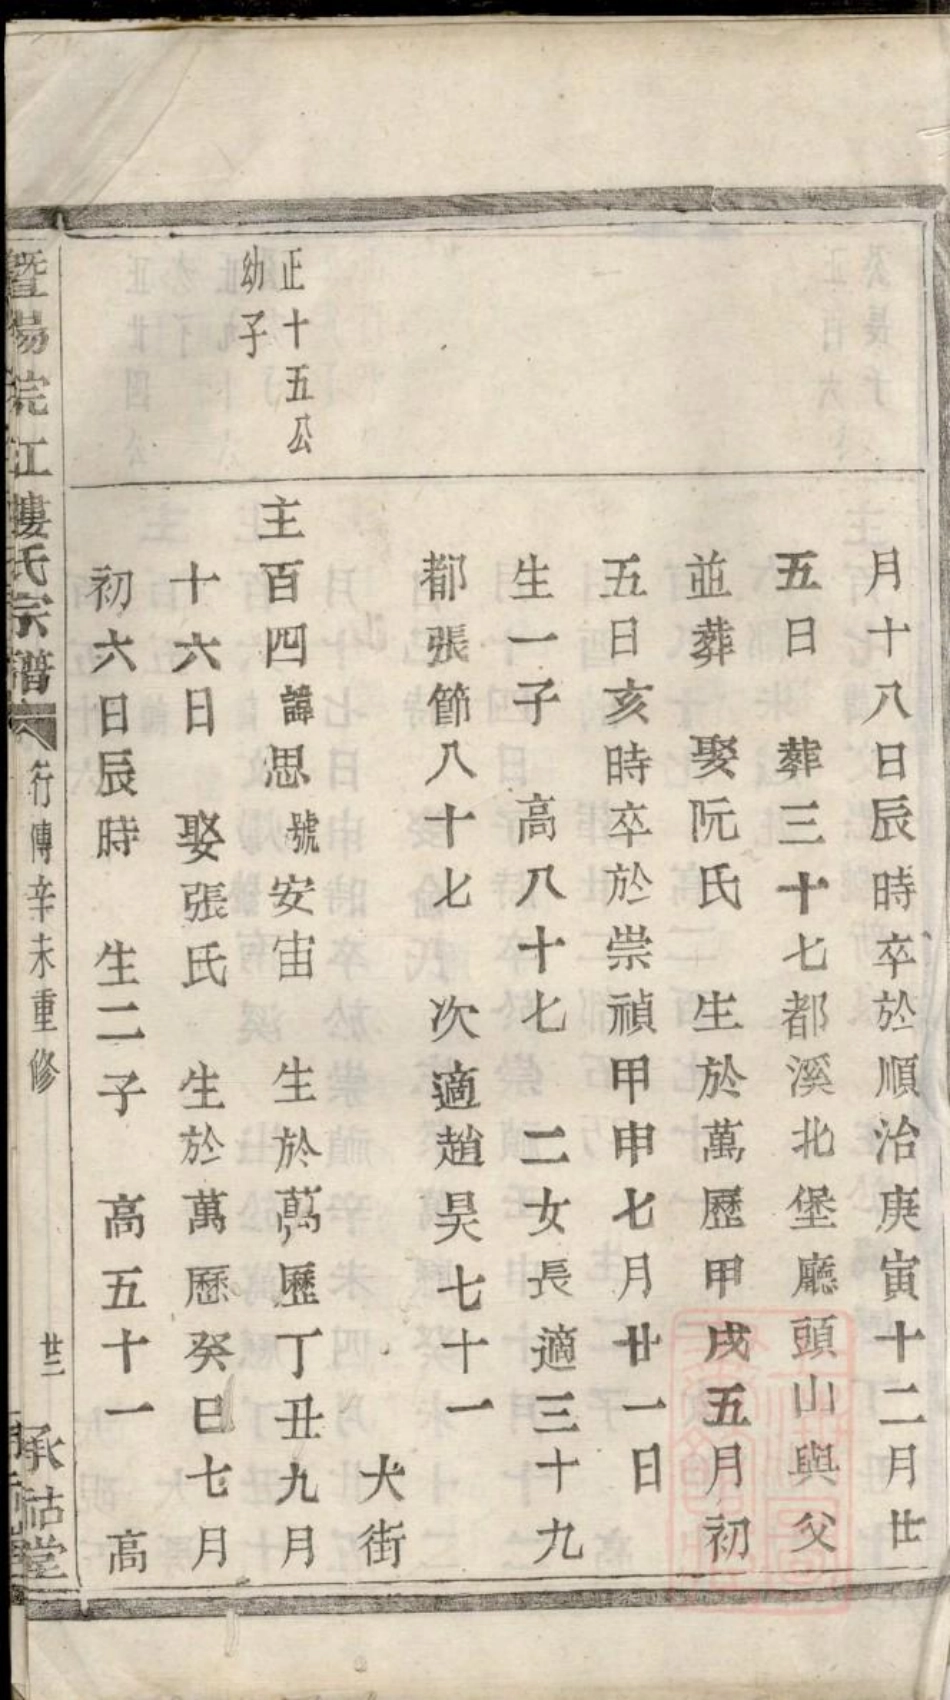 月十八日辰時卒於順治庚寅十二月廿
五日　葬三十七都溪北堡廳頭山與父
並葬　娶阮氏　生於萬歷甲戌五月初
五日亥時卒於崇禎甲申七月廿一日
生一子　高八十七　二女長適三十九
都張節八十七　次適趙昊七十一
犬街
正十五公
幼子
主百四諱思號安宙　生於萬歷丁丑九月
十六日　娶張氏　生於萬歷癸巳七月
初六日辰時　生二子　高五十一　高
暨陽浣江樓氏宗譜
行傳辛未重修
廿三
承祜堂